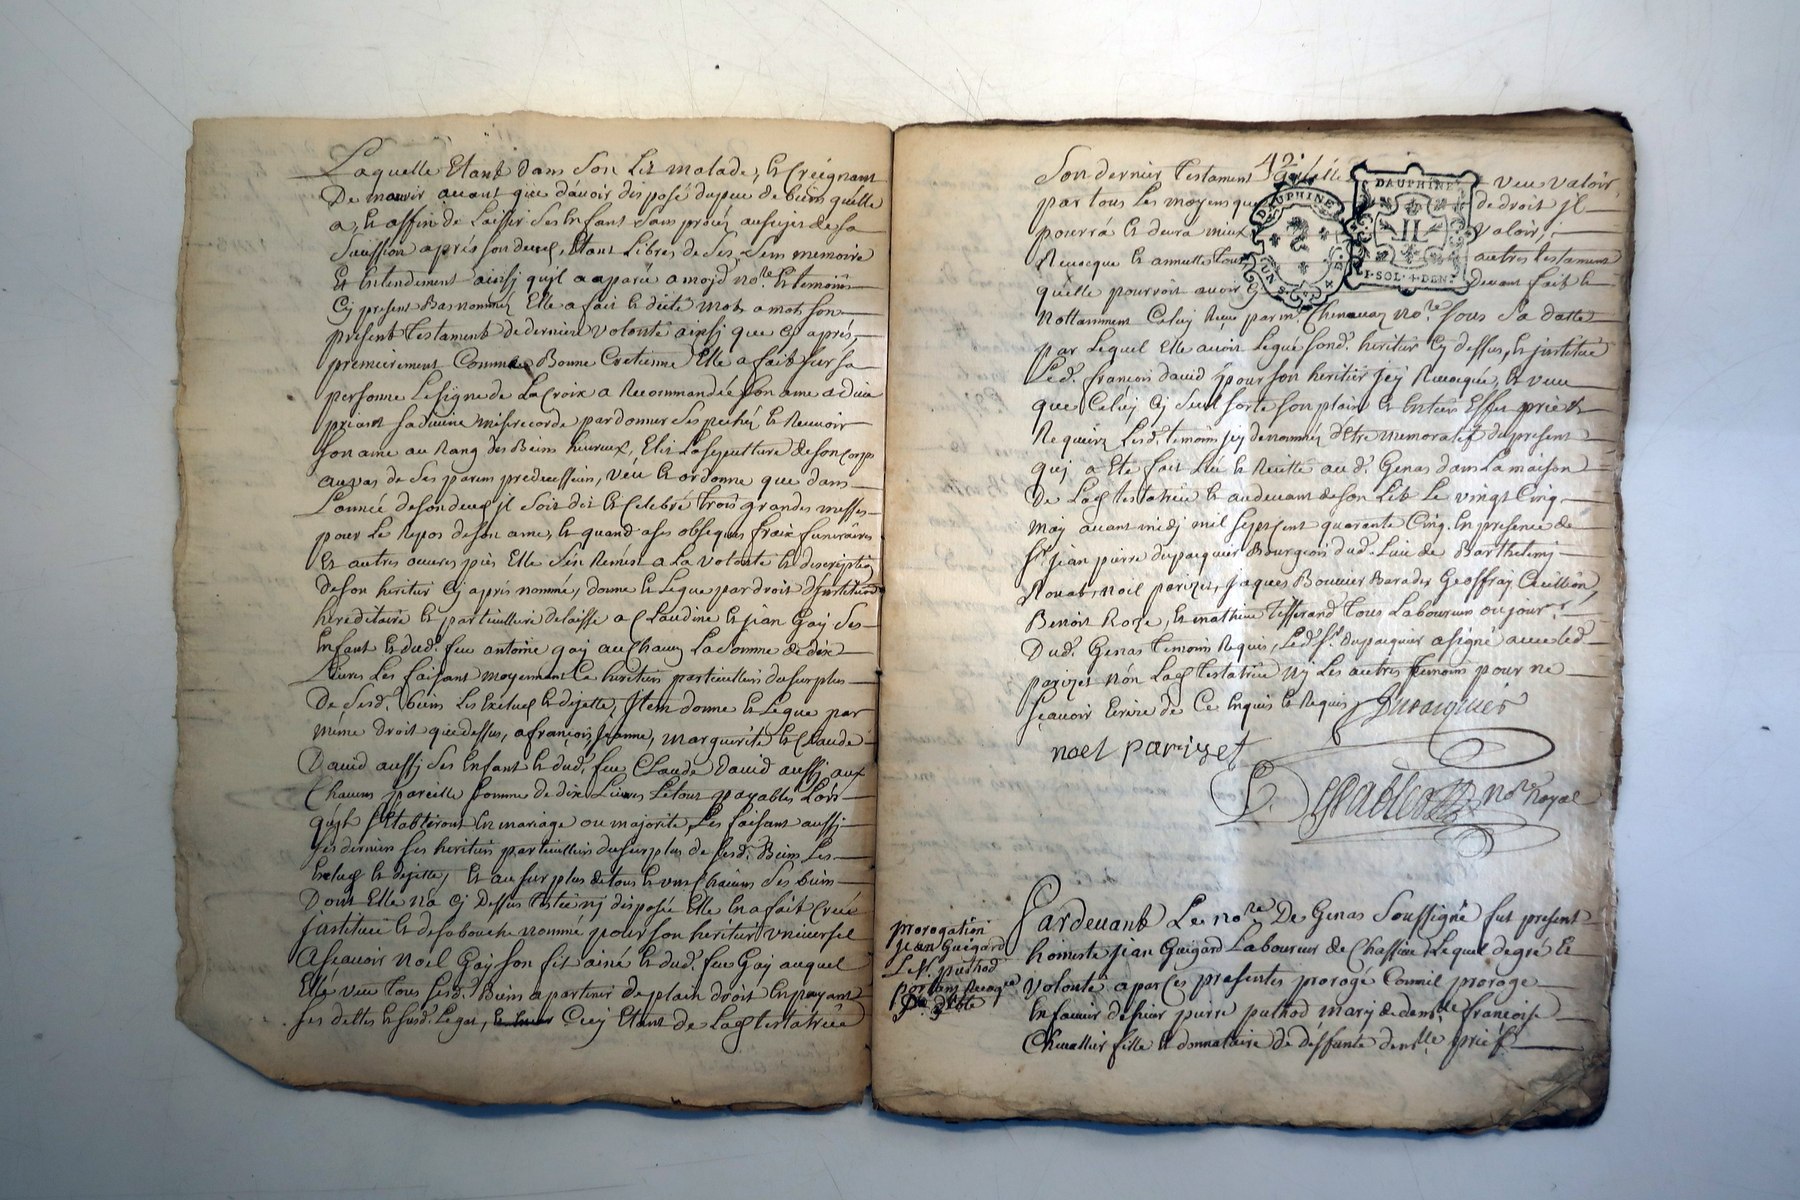 Laquelle Etant dans Son Lit malade, et Creignant
De mourir avant que d'avoir disposé du peu de biens quelle
a, et affin de Laisser Ses Enfant Sans procés au sujet de sa
Sucession aprés son deces, Etant Libres de Ses Sens memoire
Et Entendement ainsy quil a aparu a moyd nore. Et temoins
Cy present Bas nommés Elle a fait et dicté mot a mot son
present Testament de derniere volonté ainsy que Cy aprés,
premierement Comme Bonne Cretienne Elle a fait sur sa
personne Le signe de La Croix a Recommandée Son ame a Dieu
priant Sa divine misericorde pardonner Ses pechés et Recevoir
Son ame au Rang des Biens heureux, Elit La sepulture de son Corps
au vas de Ses parens predecesseurs, veut et ordonne que dans
L'année de son deces il Soit dit et Celebré trois grandes messes
pour Le Repos de son ame, et quand a ses obseques fraix funeraires
Et autres œuvres pies Elle S'en Remet a La volonté et discreption
de son heritier Cy aprés nommé, donne et Legue par droit d'institution
hereditaire et particulliere delaisse a Claudine et jean Gay Ses
Enfant et dud. feu antoine gay a Chacun La somme de dix
Livres Les faisant moyennant Ce heritiers particulliers du surplus
De Sesd. biens Les Exclus et dejette, Item donne et Legue par
même droit que dessus, a françois, Jeanne, marguerite et Claude
David aussy Ses Enfant et dud. feu Claude David aussy aux
Chacuns pareille Somme de dix Livres Le tout payables Lors
quils S'Etabliront En mariage ou majorité Les faisant aussy
Ses derniers Ses heritiers particulliers du surplus de Sesd. Biens Les
Exclus et dejette, et au surplus de tous et uns Chacuns Ses biens
Dont Elle n'a Cy Dessus Testée ny disposée Elle En a fait Creé
Institué et de sa bouche nommé pour Son heritier universel
A sçavoir Noel Gay Son fils ainé et dud. feu Gay auquel
Elle veut tous Sesd. Biens apartenir de plain droit En payant
Ses dettes et susd. Legat, Cecy Etant de Lad. testatrice
42.
Son dernier Testament veut valoir
par tous Les moyens que de droit Il
pourrá et devra mieux valoir,
Revocque et annulle Tous autres testament
quelle pourroit avoir Cy Devant fait et
Nottamment Celuy Reçu par me. Chenavaz nore. Sous Sa datte
par Lequel Elle avoit Legué Sond. heritier Cy dessus, et jnstitué
Led. françois david pour son heritier jcy Revocqué, et veut
que Celuy Cy Seul Sorte Son plain et Entiers Effet priet
Requierz Lesd. temoins jcy denommés d'Etre memoratif du present
quj a Eté fait Leu et Recitte aud. Genas dans La maison
De Lad. testatrice et au devant de son Lit Le vingt Cinq
may avant midy mil Sept Cent quarante Cinq. En presence de
Sr. jean pierre dupacquier Bourgeois dud. Lieu de Barthelemy
Novat, noil parizet, jaques Bouvier Barades Geoffray Cuillbon
Benoit Roze, et mathieu Tisserand tous Laboureurs ou jourrs.
Dud. Genas temoins Requis, Led Sr. Dupacquier a signé avec led
parizet nón Lad. testatrice ny Les autres temoins pour ne
sçavoir Ecrire de Ce Enquis et Requis Dupacquier
noel parizet
nore Royal
DAUPHINÉ
UN S.
DAUPHINE
II
1·SOL·4·DEN
prorogation
Jean Guigard
Le sr. puthod
Pardevant Le nore De Genas Soussigné fut present
honneste jean Guigard Laboureur de Chassieu Lequel de gré et
Volonté a par Ces presentes prorogé Comme il proroge
En faveur de sieur pierre puthod mary de demlle françoise
Chevallier fille et donnataire de deffunte demlle